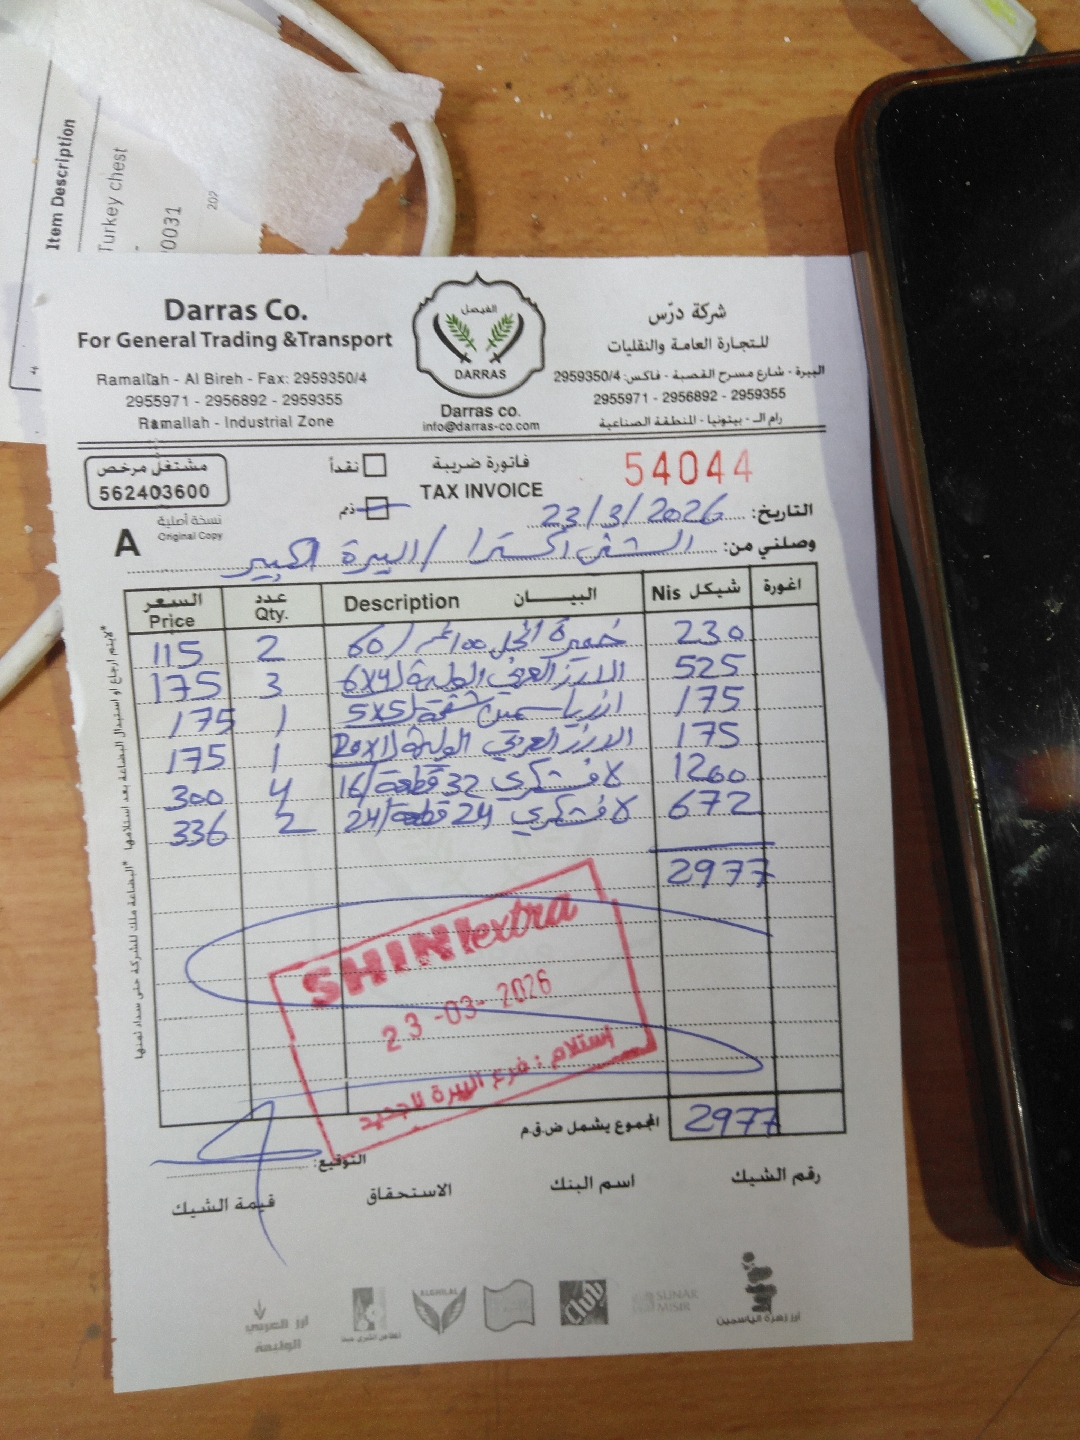 Item Description
Turkey chest
0031
202
Darras Co.
For General Trading &Transport
Ramallah - Al Bireh - Fax: 2959350/4
2955971 - 2956892 - 2959355
Ramallah - Industrial Zone
الفيصل
DARRAS
Darras co.
info@darras-co.com
شركة درّس
للتجارة العامة والنقليات
البيرة - شارع مسرح القصبة - فاكس: 2959350/4
2955971 - 2956892 - 2959355
رام الـ - بيتونيا - المنطقة الصناعية
مشتغل مرخص
562403600
نقداً
ذمم
فاتورة ضريبة
TAX INVOICE
54044
نسخة أصلية
Original Copy
A
التاريخ: 23/3/2026
وصلني من: الشني اكسترا / البيرة الكبير
السعر Price عدد Qty. Description البيـــــان شيكل Nis اغورة
115 2 خميرة النخل 100غم /60 230
175 3 الارز العربي الوليمة /6X4 525
175 1 ارز ياسمين شقحة /5X5 175
175 1 الارز العربي الوليمة /20X1 175
300 4 لافشكري 32 قطعة /16 1200
336 2 لافشكري 24 قطعة /24 672
2977
SHINI extra
23-03-2026
إستلام : فرع البيرة الجديد
المجموع يشمل ض.ق.م 2977
التوقيع:
رقم الشيك اسم البنك الاستحقاق قيمة الشيك
*لايتم ارجاع او استبدال البضاعة بعد استلامها *البضاعة ملك للشركة حتى سداد ثمنها
ارز العربي
الوليمة
ALGHILAL
Club
SUNAR
MISIR
ارز زهرة الياسمين